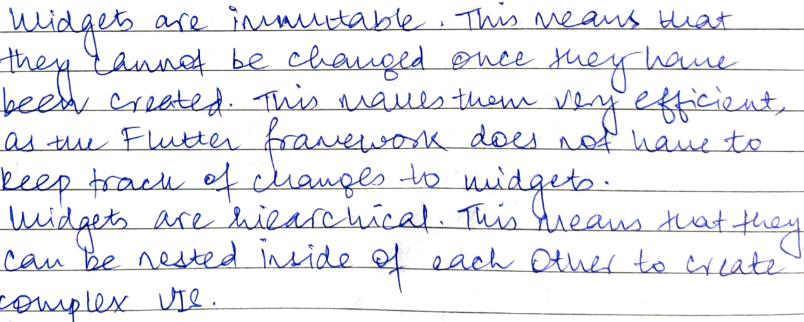 Widgets are immutable. This means that
they cannot be changed once they have
been created. This makes them very efficient,
as the Flutter framework does not have to
keep track of changes to widgets.
Widgets are hiearchical. This means that they
can be nested inside of each other to create
complex UIs.